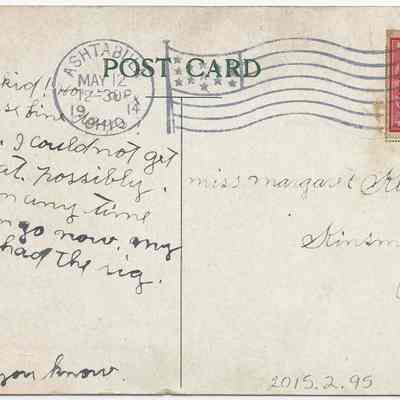 POST CARD
ASHTABULA
MAY 12
12-30P
1914
OHIO
kid!
. I could not get
at. possibly.
n any time
go now, my
had the rig.
you know.
miss margaret
Kinsm
2015.2.95